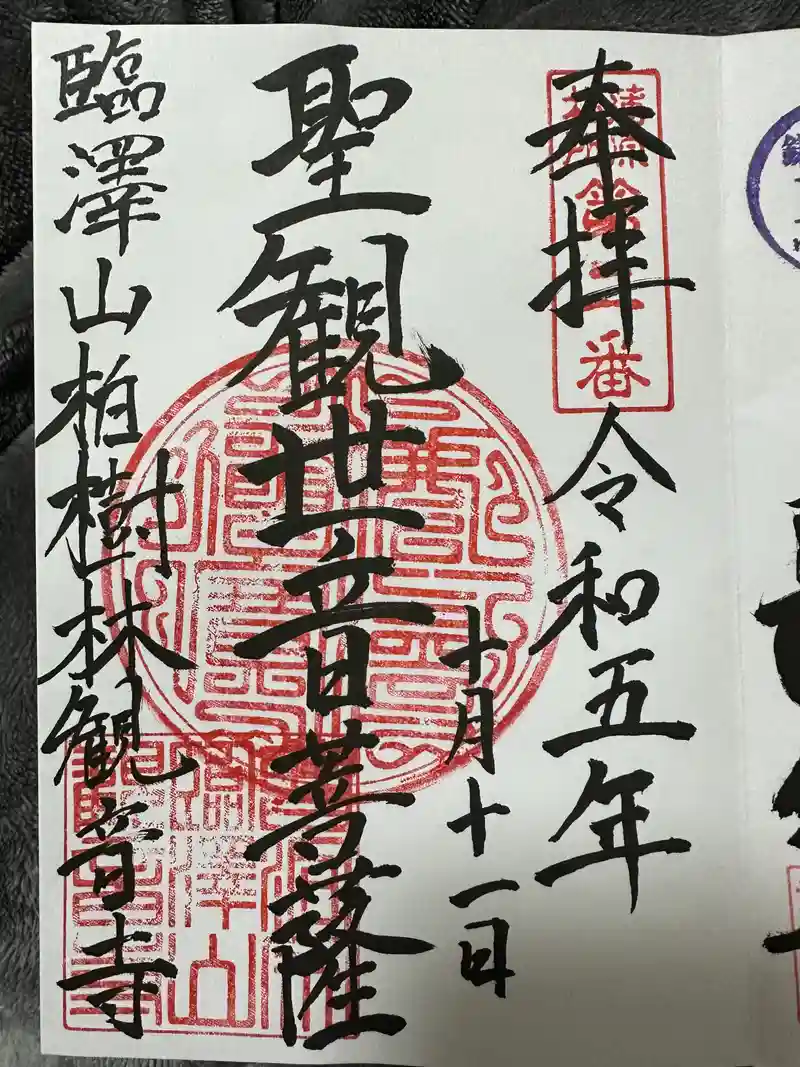 奉拝
令和五年
十月十一日
聖観世音菩薩
臨澤山柏樹林観音寺
番
臨澤山